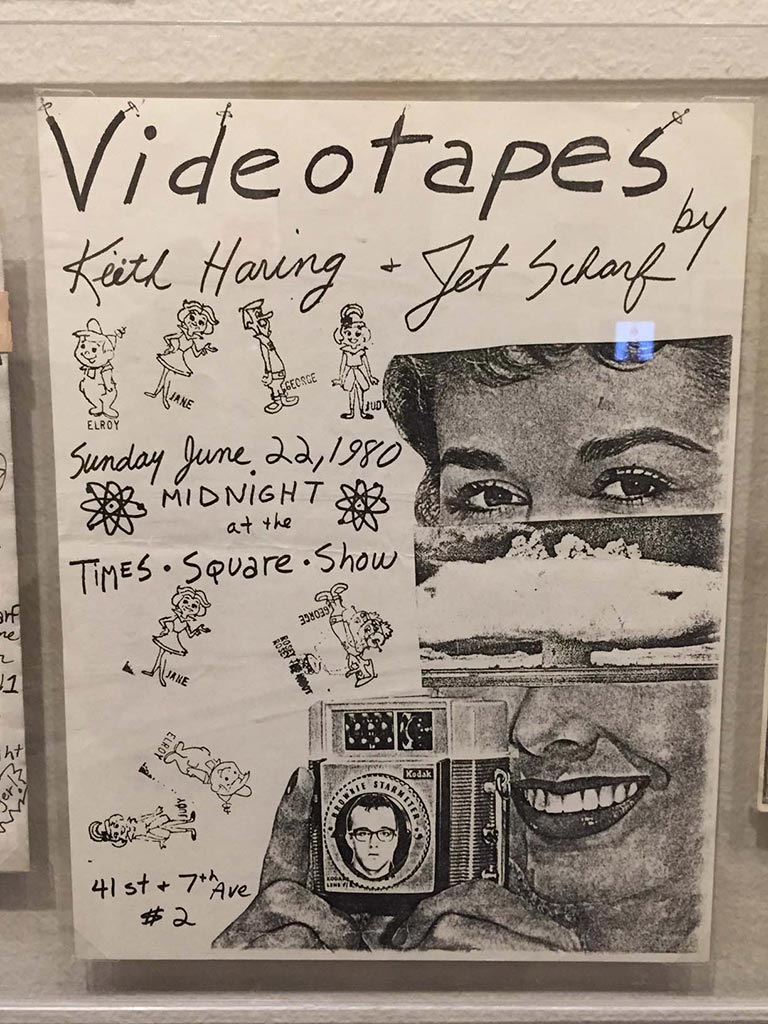 Videotapes
by
Keith Haring + Jet Scharf
ELROY
JANE
GEORGE
JUDY
Sunday June 22, 1980
MIDNIGHT
at the
TIMES • Square • Show
JANE
GEORGE
ELROY
JUDY
Kodak
BROWNIE STARMITE
KODAK
LENS
41 st + 7th Ave
$2